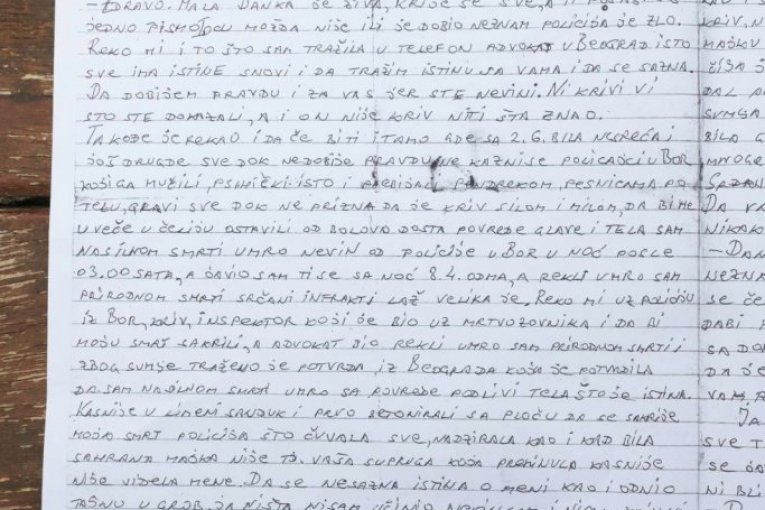 - ZDRAVO. MALA DANKA JE ŽIVA, KRIJE SE SVE, A
JEDNO PISMO MOŽDA NIJE ILI JE DOBIO NEZNAM POLICIJA JE ZLO.
REKO MI I TO ŠTO SAM TRAŽILA U TELEFON ADVOKAT U BEOGRAD ISTO
SVE IMA ISTINE SNOVI I DA TRAŽIM ISTINU SA VAMA I DA SE SAZNA.
DA DOBIJEM PRAVDU I ZA VAS JER STE NEVINI. NI KRIVI VI
STO STE DOKAZALI, A I ON NIJE KRIV NITI ŠTA ZNAO.
TAKOĐE JE REKAO I DA ČE BITI I TAMO GDE SA 2.6. BILA NESREĆA I
JOŠ DRUGDE SVE DOK NEDOBIJE PRAVDU, NE KAZNI SE POLICAJCI U BOR
KOJI GA MUČILI, PSIHIČKI ISTO I PREBIJALI PENDREKOM, PESNICAMA PO
TELU, GLAVI SVE DOK NE PRIZNA DA JE KRIV SILOM I MILOM, DA BI ME
U VEČE U ĆELIJU OSTAVILI OD BOLOVA DOSTA POVREDE GLAVE I TELA SAM
NASILNOM SMRTI UMRO NEVIN OD POLICIJE U BOR U NOĆ POSLE
03.00 SATA, A JAVIO SAM TI SE SA NOĆ 8.4. ODMA, A REKLI UMRO SAM
PRIRODNOM SMRTI SRČANI INFRAKTI LAŽ VELIKA JE. REKO MI UZ POLICIJU
IZ BOR, KRIV, INSPEKTOR KOJI JE BIO UZ MRTVOZOVNIKA I DA BI
MOJU SMRT SAKRILI, A ADVOKAT BIO REKLI UMRO SAM PRIRODNOM SMRTI I
ZBOG SUMJE TRAŽENO JE POTVRDA IZ BEOGRADA KOJA JE POTVRDILA
DA SAM NASILNOM SMRTI UMRO SA POVREDE PODLIVI TELA ŠTO JE ISTINA.
KASNIJE U LIMENI SANDUK I PRVO BETONIRALI SA PLOČU DA SE SAKRIJE
MOJA SMRT POLICIJA ŠTO ČUVALA SVE, NADZIRALA KAO I KAD BILA
SAHRANA MAJKA NIJE TO. VAŠA SUPRUGA KOJA PREMINULA KASNIJE
NIJE VIDELA MENE. DA SE NESAZNA ISTINA O MENI KAO I ODNIO
TAJNU U GROB. JA NIŠTA NISAM UČINIO
KRIV, N
MAJKU
DAL
SUMJA
BILA G
MNOGE
SRDAN
DA VA
NIKAKO
- DAN
NEZNA
SE ČE
DA BI
SA DO
DA JE
VAMA
JA
SVE T
SE JA
NI BLI